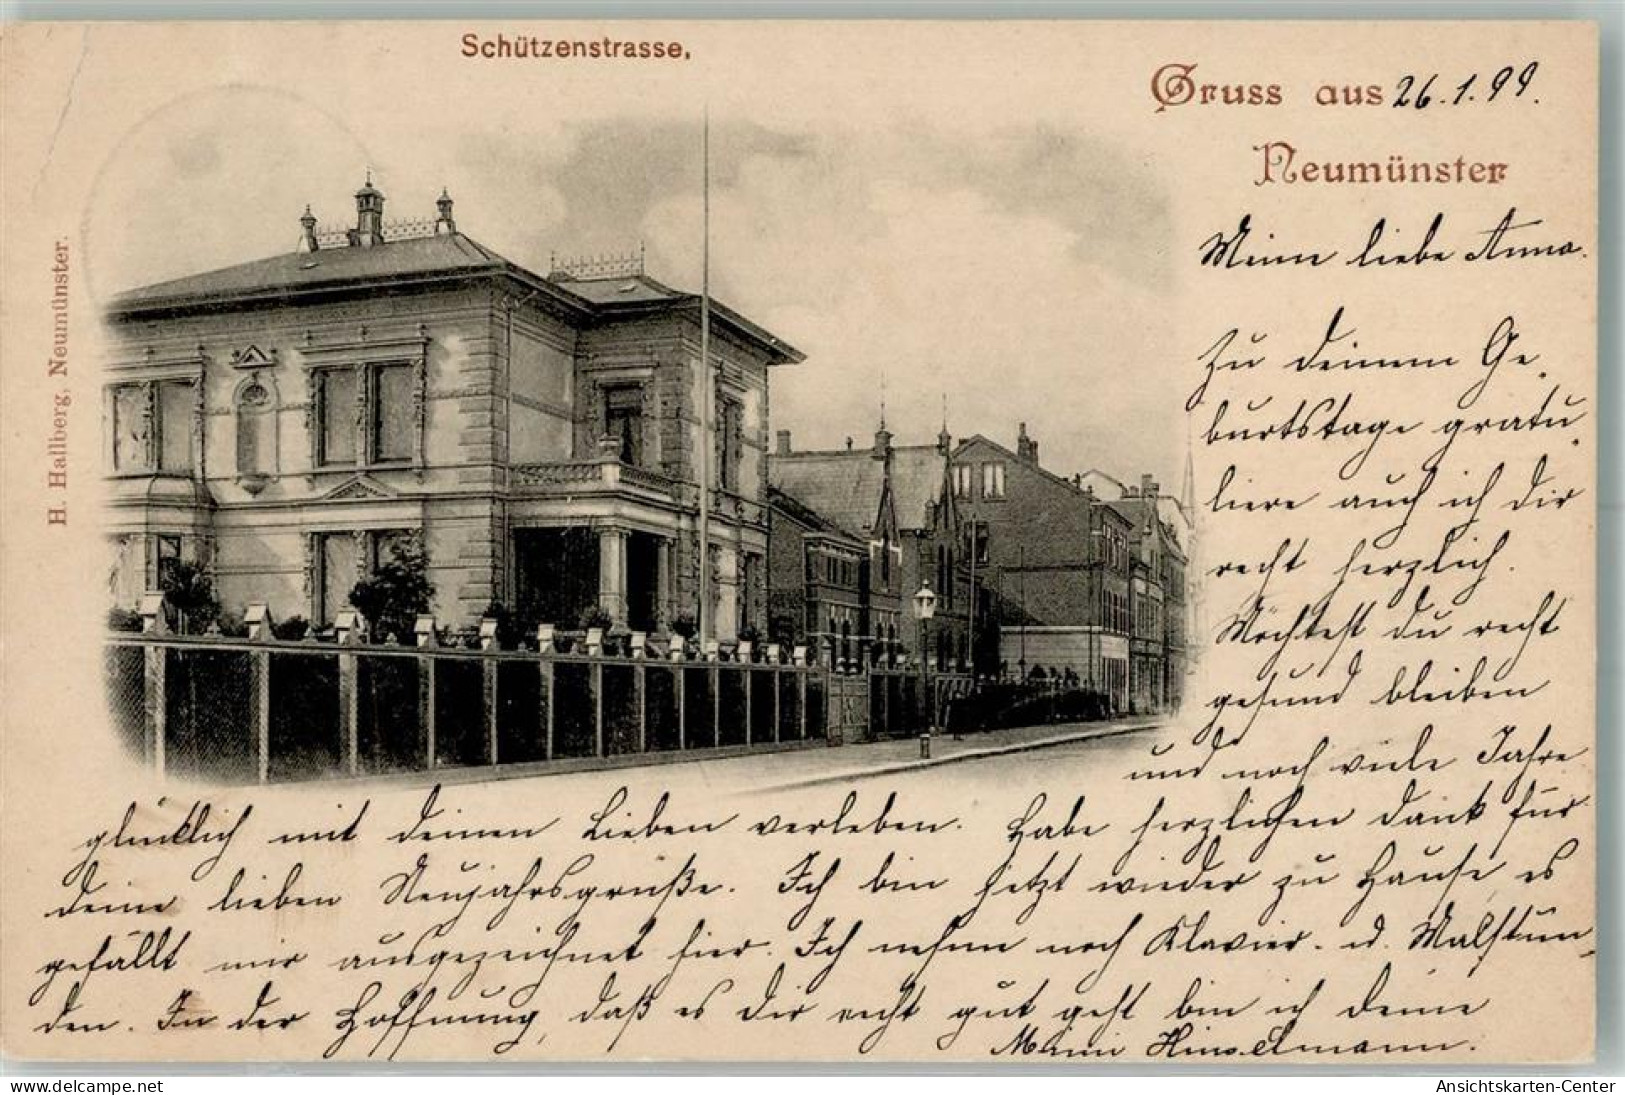 Schützenstrasse.
Gruss aus 26.1.99.
Neumünster
H. Hallberg, Neumünster.
Meine liebe Anna.
Zu deinem Ge-
burtstage gratu-
liere auch ich dir
recht herzlich.
Möchtest du recht
gesund bleiben
und noch viele Jahre
glücklich mit deinen Lieben verleben. Habe herzlichen Dank für
deine lieben Neujahrsgrüße. Ich bin jetzt wieder zu Hause, es
gefällt mir ausgezeichnet hier. Ich nehme noch Klavier- u. Malstun-
den. In der Hoffnung, daß es dir recht gut geht bin ich deine
Mimi
delcampe.net
Ansichtskarten-Center